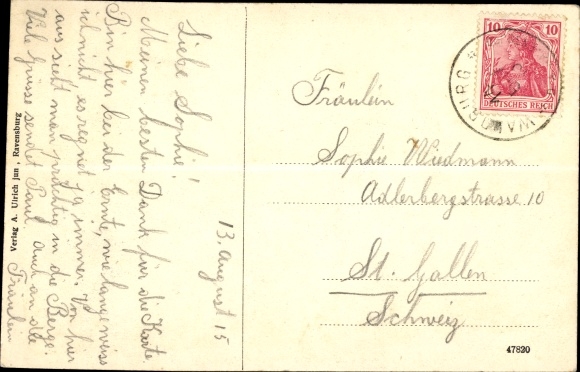 Liebe Sophie!
Meinen besten Dank für die Karte.
Bin hier bei der Ernte, wie lange weiss
ich nicht, es regnet ja immer. Von hier
aus sieht man prächtig in die Berge.
Viele Grüsse sendet Paul auch an die
Fräulein
13. August 15
Verlag A. Ulrich jun., Ravensburg
Fräulein
Sophie Wiedmann
Adlerbergstrasse 10
St. Gallen
Schweiz
10 10
DEUTSCHES REICH
WALDBURG
47820